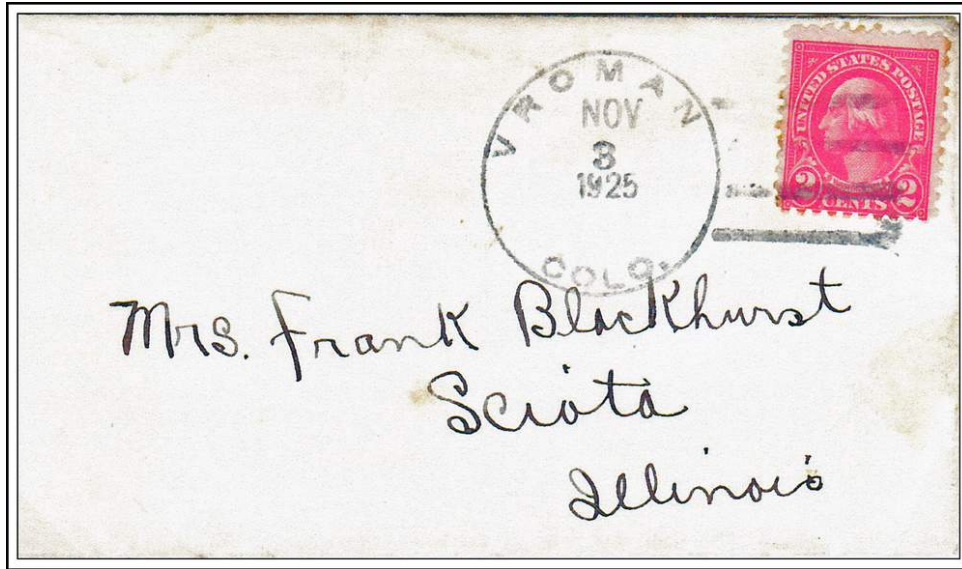 VROMAN
NOV
3
1925
COLO.
UNITED STATES POSTAGE
2 CENTS 2
Mrs. Frank Blackhurst
Sciota
Illinois